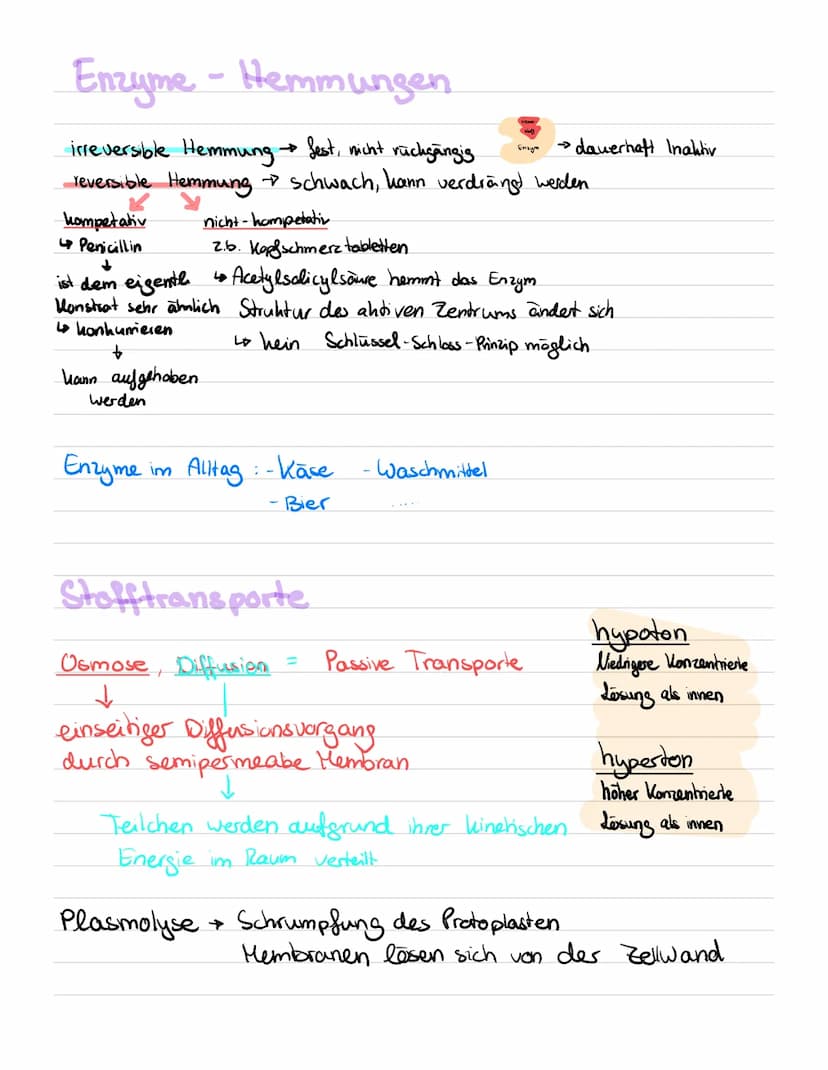 Enzyme - Hemmungen
irreversible Hemmung → fest, nicht rückgängig
Enzym
→ dauerhaft Inaktiv
reversible Hemmung → schwach, kann verdrängt werden
kompetativ
↳ Penicillin
↓
ist dem eigentl.
Konstrat sehr ähnlich
↳ konkurrieren
↓
kann aufgehoben
werden
nicht-kompetativ
z.b. Kopfschmerztabletten
↳ Acetylsalicylsäure hemmt das Enzym
Struktur des aktiven Zentrums ändert sich
↳ kein Schlüssel-Schloss-Prinzip möglich
Enzyme im Alltag : - Käse - Waschmittel
- Bier ....
Stofftransporte
Osmose, Diffusion = Passive Transporte
↓
einseitiger Diffusionsvorgang
durch semipermeabe Membran
↓
Teilchen werden aufgrund ihrer kinetischen
Energie im Raum verteilt
hypoton
Niedrigere Konzentrierte
Lösung als innen
hyperton
höher Konzentrierte
Lösung als innen
Plasmolyse → Schrumpfung des Protoplasten
Membranen lösen sich von der Zellwand